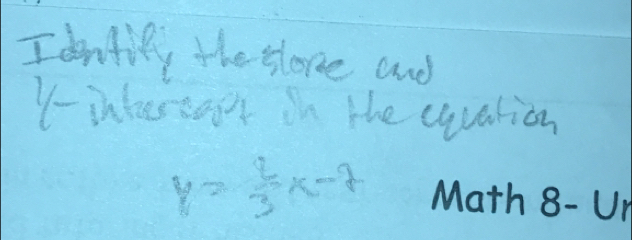 Identify the slope and
y-intercept in the equation
y = 2/3 x - 7
Math 8- Un